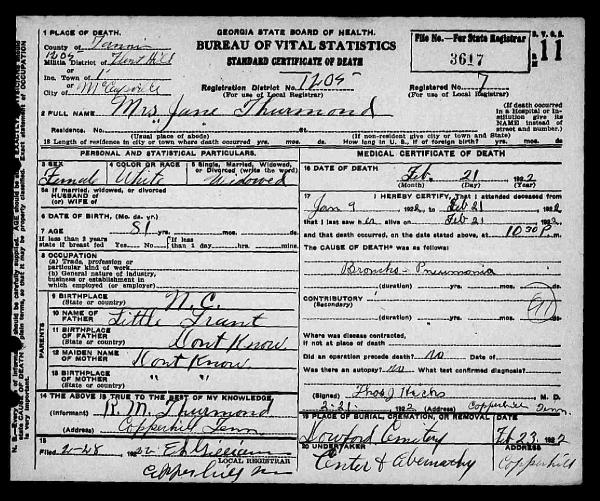 1 PLACE OF DEATH.
County of Fannin
1205
Militia District of Flint Hill
or
Inc. Town of
or
City of McCaysville
GEORGIA STATE BOARD OF HEALTH.
BUREAU OF VITAL STATISTICS
STANDARD CERTIFICATE OF DEATH
Registration District No. 1205
(For use of Local Registrar)
File No.—For State Registrar
3617
Registered No. 7
(For use of Local Registrar)
11
2 FULL NAME Mrs Jane Thurmond
(If death occurred in a Hospital or Institution give its NAME instead of street and number.)
Residence. No. St.
(Usual place of abode) (If non-resident give city or town and State)
18 Length of residence in city or town where death occurred yrs. mos. ds. How long in U. S., if of foreign birth? yrs. mos. ds.
PERSONAL AND STATISTICAL PARTICULARS.
3 SEX
Female
4 COLOR OR RACE
White
5 Single, Married, Widowed, or Divorced (write the word)
Widowed
5a If married, widowed, or divorced
HUSBAND of
(or) WIFE of
6 DATE OF BIRTH. (Mo. da. yr.)
7 AGE 81 yrs. mos. ds.
If less than 2 years state if breast fed Yes No If less than 1 day, hrs. min.
8 OCCUPATION
(a) Trade, profession or particular kind of work
(b) General nature of industry, business or establishment in which employed (or employer)
9 BIRTHPLACE
(State or country) N. C.
PARENTS
10 NAME OF FATHER Little Grant
11 BIRTHPLACE OF FATHER
(State or country) Dont Know
12 MAIDEN NAME OF MOTHER Dont Know
13 BIRTHPLACE OF MOTHER
(State or country) " "
14 THE ABOVE IS TRUE TO THE BEST OF MY KNOWLEDGE
(Informant) R. M. Thurmond
(Address) Copperhill Tenn.
15
Filed 2-28 1922
LOCAL REGISTRAR
Copperhill
MEDICAL CERTIFICATE OF DEATH.
16 DATE OF DEATH Feb. 21 1922
(Month) (Day) (Year)
17 I HEREBY CERTIFY, That I attended deceased from
Jan 9 1922 to Feb 21 1922
that I last saw her alive on Feb 21 1922
and that death occurred, on the date stated above, at 10.30 P. m.
The CAUSE OF DEATH* was as follows:
Broncho-Pneumonia
(duration) yrs. mos. ds.
CONTRIBUTORY
(Secondary)
(duration) yrs. mos. ds.
Where was disease contracted,
if not at place of death?
Did an operation precede death? no Date of
Was there an autopsy? no What test confirmed diagnosis?
(Signed) Thos J Hicks M. D.
2-21- 1922 (Address) Copperhill Tenn.
19 PLACE OF BURIAL, CREMATION, OR REMOVAL DATE
Cemetery Feb 23 1922
20 UNDERTAKER
Center & Abernathy Copperhill